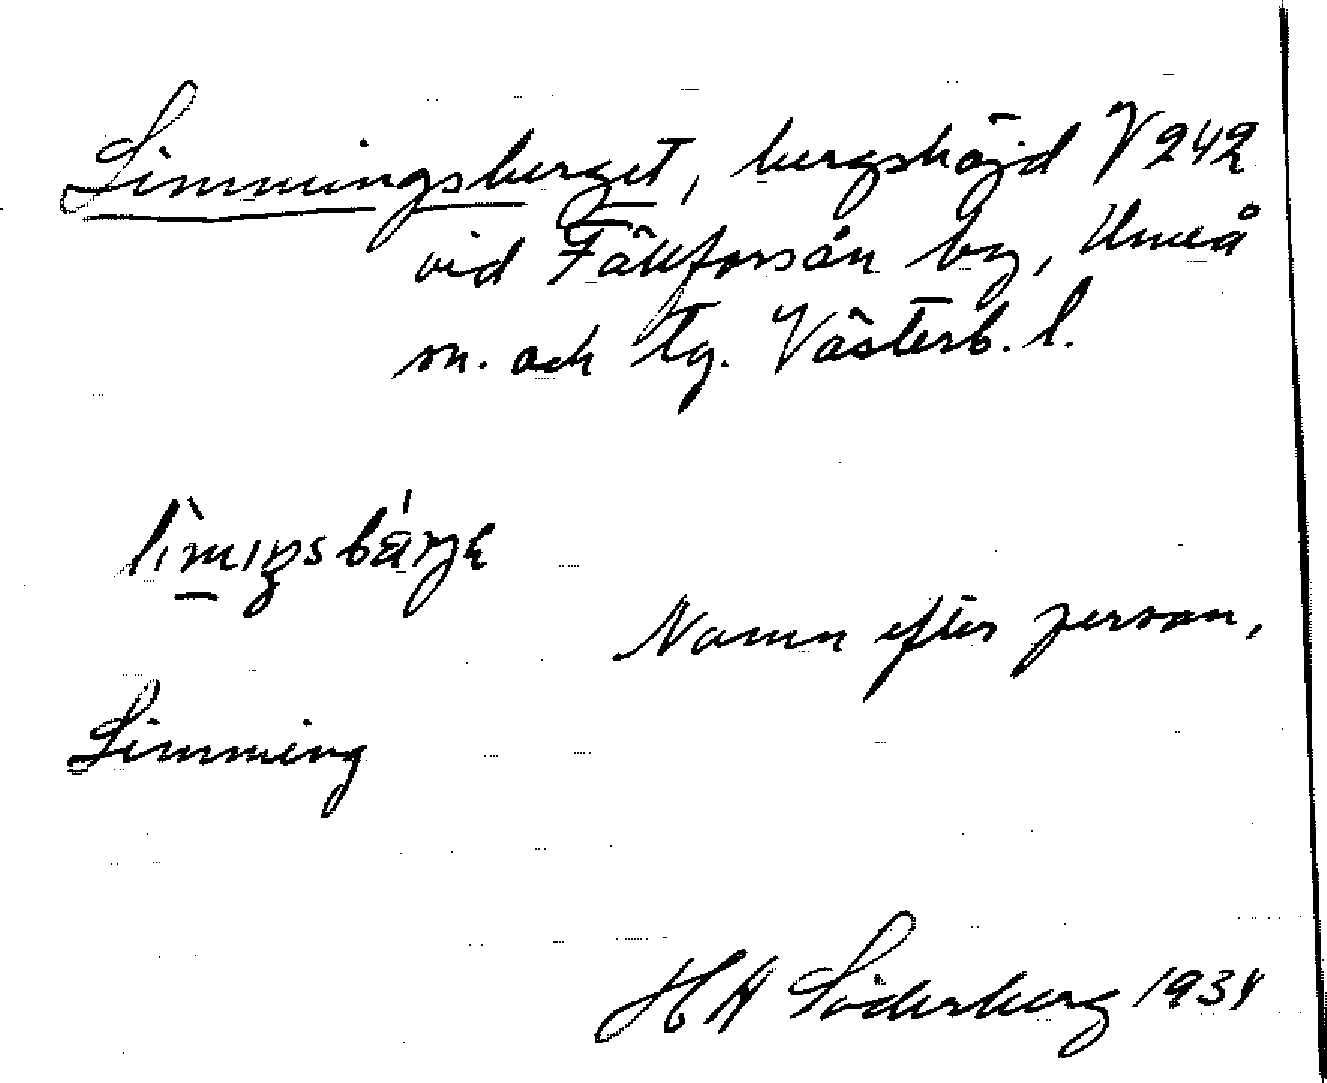 Limmingsberget, bergshöjd V 242
vid Fällforsån by, Umeå
sn. och tg. Västerb. l.
Namn efter person,
Limming
H A Söderberg 1934